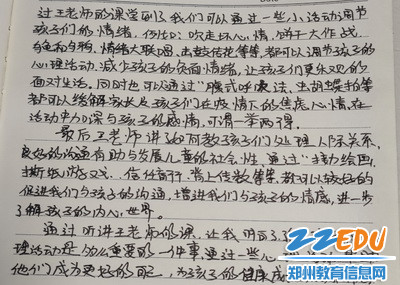 过王老师的课堂 我们可以通过一些小活动调节
孩子们的情绪，例如：吹走坏心情，饼干大作战，
乌龟和乌鸦，情绪大联唱，击鼓传花等等，都可以调节孩子的
心理活动，减少孩子的负面情绪，让孩子们更乐观的
面对生活。同时也可以通过“腹式呼吸法，蝴蝶拍等
都可以缓解家长及孩子们在疫情下的焦虑心情，在
活动中加深与孩子的感情，可谓一举两得。
最后王老师讲了如何教孩子们处理人际关系，
良好的沟通有助与发展儿童的社会性，通过“接力绘画，
撕纸游戏、信任背手、背上传数等等，都可以较好的
促进我们与孩子的沟通，增进我们与孩子的情感，进一步
了解孩子的内心世界。
通过听讲王老师的课，让我明
理活动是多么重要的一件事，通过一些心
他们成为更好的自己，为孩子的健康成
22EDU
郑州教育信息网